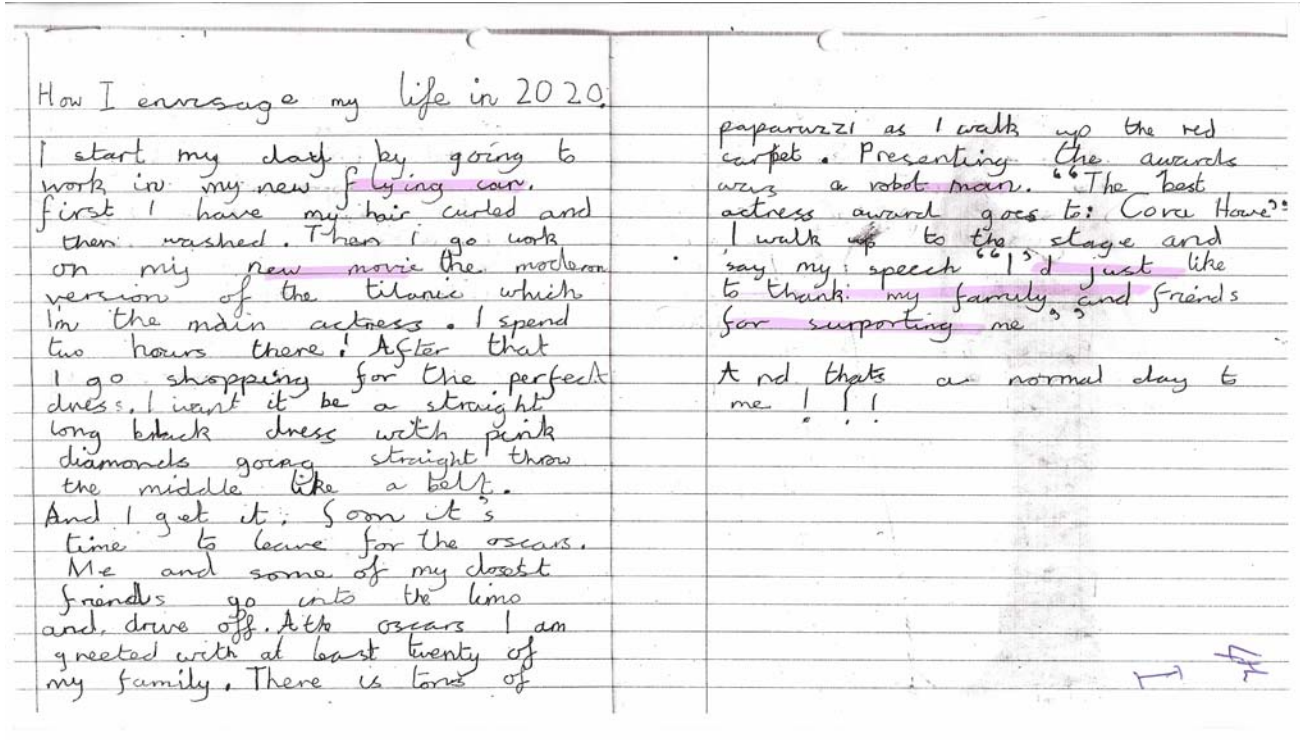 How I envisage my life in 2020.
I start my day by going to
work in my new flying car.
first I have my hair curled and
then washed. Then I go work
on my new movie the moderon
version of the titanic which
i'm the main actress. I spend
two hours there! After that
I go shopping for the perfect
dress. I want it be a straight
long black dress with pink
diamonds going straight throw
the middle like a belt.
And I get it; Soon it's
time to leave for the oscars.
Me and some of my closest
friends go into the limo
and drive off. At the oscars I am
greeted with at least twenty of
my family. There is tons of
paparuzzi as I walk up the red
carpet. Presenting the awards
was a robot man. "The best
actress award goes to: Cora Howe":
I walk up to the stage and
say my speech "I'd just like
to thank my family and friends
for surporting me"
And thats a normal day to
me!!!